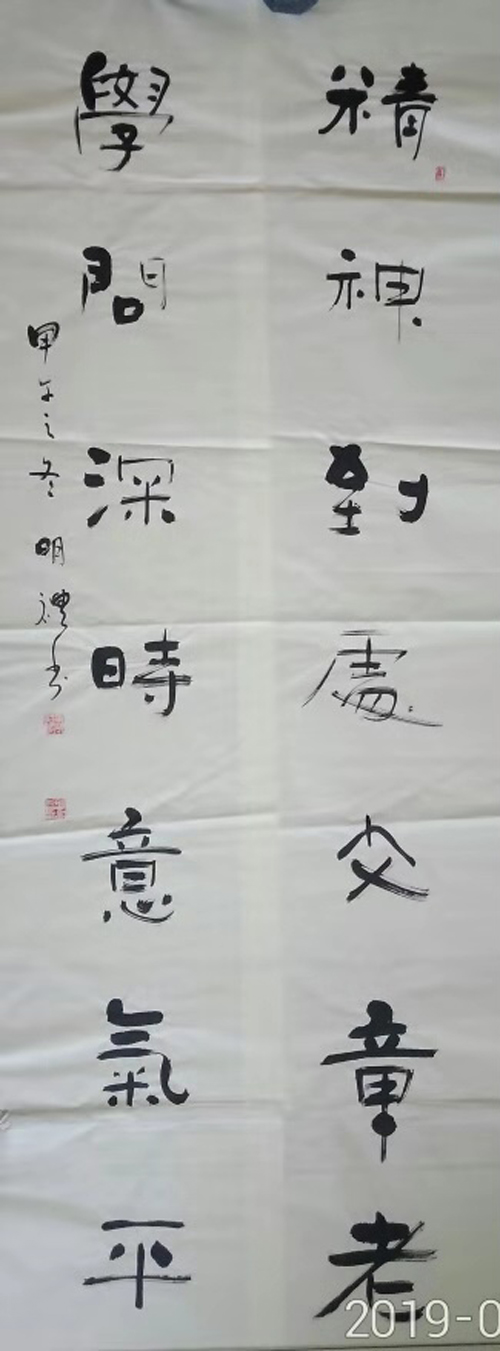 精神到處文章老
學問深時意氣平
甲午之冬明禮书
2019-0